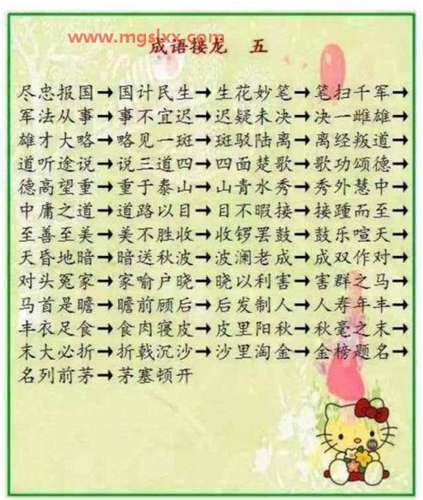 www.mgslxx.com
成语接龙 五
尽忠报国→国计民生→生花妙笔→笔扫千军→
军法从事→事不宜迟→迟疑未决→决一雌雄→
雄才大略→略见一斑→斑驳陆离→离经叛道→
道听途说→说三道四→四面楚歌→歌功颂德→
德高望重→重于泰山→山青水秀→秀外慧中→
中庸之道→道路以目→目不暇接→接踵而至→
至善至美→美不胜收→收锣罢鼓→鼓乐喧天→
天昏地暗→暗送秋波→波澜老成→成双作对→
对头冤家→家喻户晓→晓以利害→害群之马→
马首是瞻→瞻前顾后→后发制人→人寿年丰→
丰衣足食→食肉寝皮→皮里阳秋→秋毫之末→
末大必折→折戟沉沙→沙里淘金→金榜题名→
名列前茅→茅塞顿开